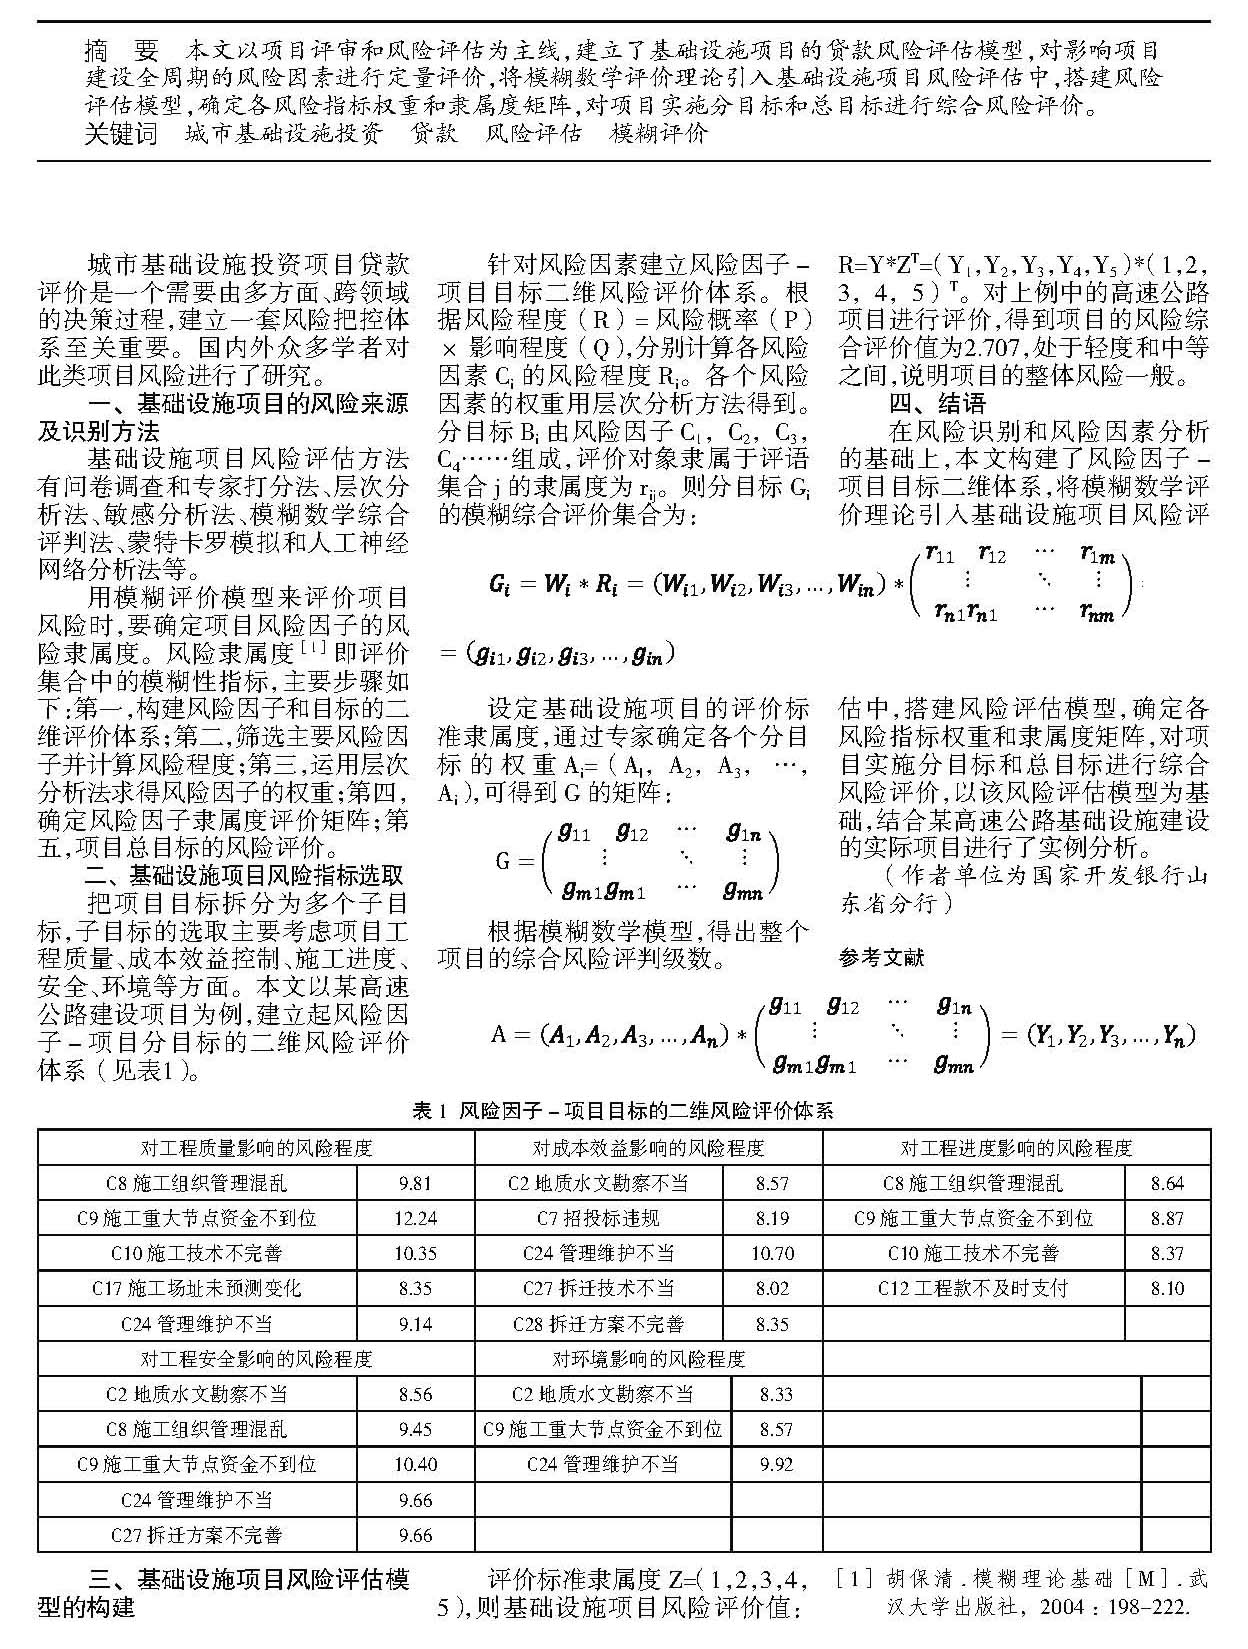 摘　要　本文以项目评审和风险评估为主线,建立了基础设施项目的贷款风险评估模型,对影响项目
建设全周期的风险因素进行定量评价,将模糊数学评价理论引入基础设施项目风险评估中,搭建风险
评估模型,确定各风险指标权重和隶属度矩阵,对项目实施分目标和总目标进行综合风险评价。
关键词　城市基础设施投资　贷款　风险评估　模糊评价
城市基础设施投资项目贷款
评价是一个需要由多方面、跨领域
的决策过程,建立一套风险把控体
系至关重要。国内外众多学者对
此类项目风险进行了研究。
一、基础设施项目的风险来源
及识别方法
基础设施项目风险评估方法
有问卷调查和专家打分法、层次分
析法、敏感分析法、模糊数学综合
评判法、蒙特卡罗模拟和人工神经
网络分析法等。
用模糊评价模型来评价项目
风险时,要确定项目风险因子的风
险隶属度。风险隶属度[1]即评价
集合中的模糊性指标,主要步骤如
下:第一,构建风险因子和目标的二
维评价体系;第二,筛选主要风险因
子并计算风险程度;第三,运用层次
分析法求得风险因子的权重;第四,
确定风险因子隶属度评价矩阵;第
五,项目总目标的风险评价。
二、基础设施项目风险指标选取
把项目目标拆分为多个子目
标,子目标的选取主要考虑项目工
程质量、成本效益控制、施工进度、
安全、环境等方面。本文以某高速
公路建设项目为例,建立起风险因
子－项目分目标的二维风险评价
体系（见表1）。
三、基础设施项目风险评估模
型的构建
针对风险因素建立风险因子－
项目目标二维风险评价体系。根
据风险程度（R）=风险概率（P）
×影响程度（Q）,分别计算各风险
因素 Ci 的风险程度 Ri。各个风险
因素的权重用层次分析方法得到。
分目标 Bi 由风险因子 C1，C2，C3，
C4……组成,评价对象隶属于评语
集合 j 的隶属度为 rij。则分目标 Gi
的模糊综合评价集合为:
Gi = Wi * Ri = (Wi1, Wi2, Wi3, ..., Win) * (r11 r12 ⋯ r1m
⋮ ⋱ ⋮
rn1rn1 ⋯ rnm) :
= (gi1, gi2, gi3, ..., gin)
设定基础设施项目的评价标
准隶属度,通过专家确定各个分目
标的权重 Ai=（Al，A2，A3，…，
Ai）,可得到 G 的矩阵:
G = (g11 g12 ⋯ g1n
⋮ ⋱ ⋮
gm1gm1 ⋯ gmn)
根据模糊数学模型,得出整个
项目的综合风险评判级数。
A = (A1, A2, A3, ..., An) * (g11 g12 ⋯ g1n
⋮ ⋱ ⋮
gm1gm1 ⋯ gmn) = (Y1, Y2, Y3, ..., Yn)
评价标准隶属度 Z=(1,2,3,4,
5),则基础设施项目风险评价值:
R=Y*ZT=(Y1,Y2,Y3,Y4,Y5)*(1,2,
3, 4, 5)T。对上例中的高速公路
项目进行评价,得到项目的风险综
合评价值为2.707,处于轻度和中等
之间,说明项目的整体风险一般。
四、结语
在风险识别和风险因素分析
的基础上,本文构建了风险因子－
项目目标二维体系,将模糊数学评
价理论引入基础设施项目风险评
估中,搭建风险评估模型,确定各
风险指标权重和隶属度矩阵,对项
目实施分目标和总目标进行综合
风险评价,以该风险评估模型为基
础,结合某高速公路基础设施建设
的实际项目进行了实例分析。
（作者单位为国家开发银行山
东省分行）
参考文献
[1] 胡保清.模糊理论基础[M].武
汉大学出版社，2004：198-222.
表 1 风险因子－项目目标的二维风险评价体系
对工程质量影响的风险程度　对成本效益影响的风险程度　对工程进度影响的风险程度
C8 施工组织管理混乱　9.81　C2 地质水文勘察不当　8.57　C8 施工组织管理混乱　8.64
C9 施工重大节点资金不到位　12.24　C7 招投标违规　8.19　C9 施工重大节点资金不到位　8.87
C10 施工技术不完善　10.35　C24 管理维护不当　10.70　C10 施工技术不完善　8.37
C17 施工场址未预测变化　8.35　C27 拆迁技术不当　8.02　C12 工程款不及时支付　8.10
C24 管理维护不当　9.14　C28 拆迁方案不完善　8.35
对工程安全影响的风险程度　对环境影响的风险程度
C2 地质水文勘察不当　8.56　C2 地质水文勘察不当　8.33
C8 施工组织管理混乱　9.45　C9 施工重大节点资金不到位　8.57
C9 施工重大节点资金不到位　10.40　C24 管理维护不当　9.92
C24 管理维护不当　9.66
C27 拆迁方案不完善　9.66